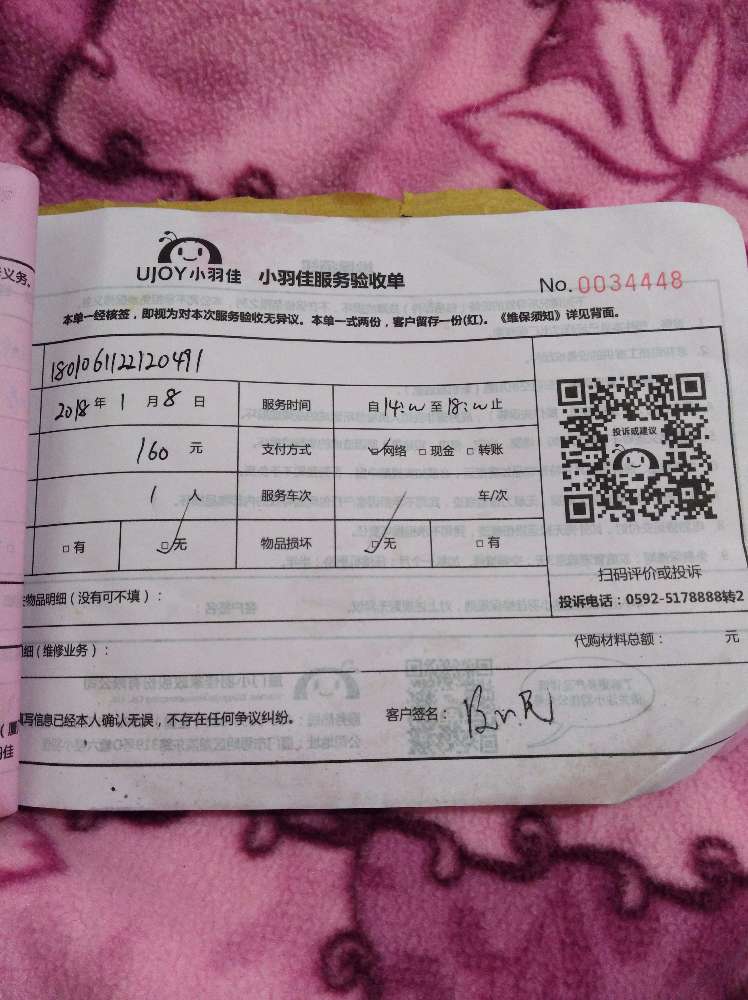 义务。
UJOY小羽佳 小羽佳服务验收单 No. 0034448
本单一经核签，即视为对本次服务验收无异议。本单一式两份，客户留存一份(红)。《维保须知》详见背面。
1801061122120491
2018年1月8日 服务时间 自14:00至18:00止
160元 支付方式 网络 □现金 □转账
1人 服务车次 车/次
□有 □无 物品损坏 □无 □有
投诉或建议
扫码评价或投诉
投诉电话：0592-5178888转2
物品明细（没有可不填）：
代购材料总额： 元
细（维修业务）：
填写信息已经本人确认无误，不存在任何争议纠纷。 客户签名：